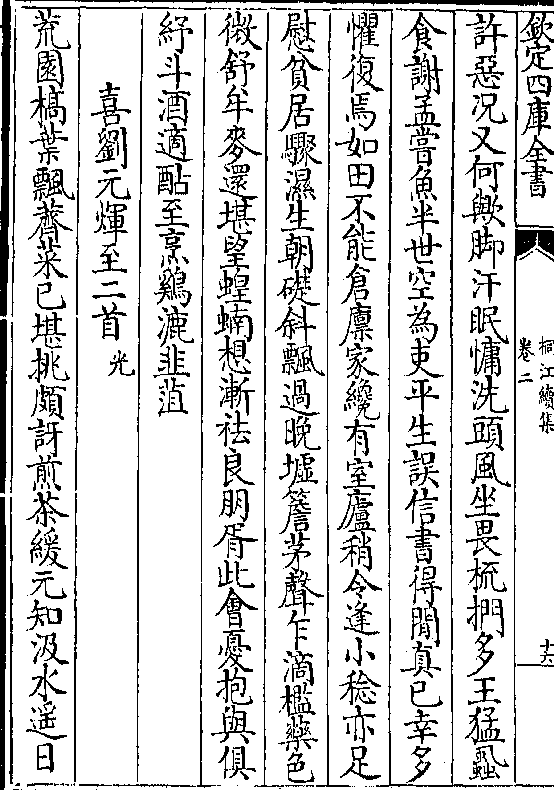 欽定四庫全書
桐江續集
卷二
十六
許惡況又何歟脚汗眠慵洗頭風坐畏梳捫多王猛蝨
食謝孟嘗魚半世空為吏平生誤信書得閒真已幸多
懼復焉如田不能倉廪家纔有室廬稍令逢小稔亦足
慰貧居驟濕生朝礎斜飄過晚墟簷茅聲乍滴檻藥色
微舒牟麥還堪望蝗蝻想漸袪良朋胥此㑹憂抱與俱
紓斗酒適酤至烹鷄漉韭菹
喜劉元煇至二首光
荒園槁葉飄薺菜已堪挑頗訝煎茶緩元知汲水遥日